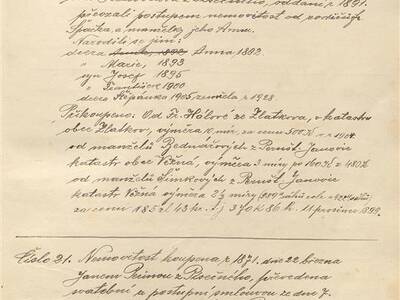 oddaní r. 1891.
převzali postupem nemovitost od rodičů
Špačka a manželky jeho Anny.
Narodili se jim:
dcera Anna 1892 Anna 1892
" Marie, 1893
syn Josef 1895
" František 1900
dcera Štěpánka 1905, zemřela r. 1928.
Přikoupeno: Od Fr. Hálové ze Zlatkova, v katastru
obce Zlatkov, výměra mír za cenu 500 K v r. 1904
od manželů Bednářových z Pernšt. Janovic
katastr obce Věžná, výměra 3 míry po 160 K = 480 K
od manželů Šimkových z Pernšt. Janovic
katastr Věžná výměra 2½ míry
za cenu 185 zl 43 kr. t.j. 370 K 86 h. 11 prosince 1899.
Číslo 21. Nemovitost koupena r. 1871. dne 22. března
Janem z Rovečného, převedena
svatební a postupní smlouvou ze dne 7.